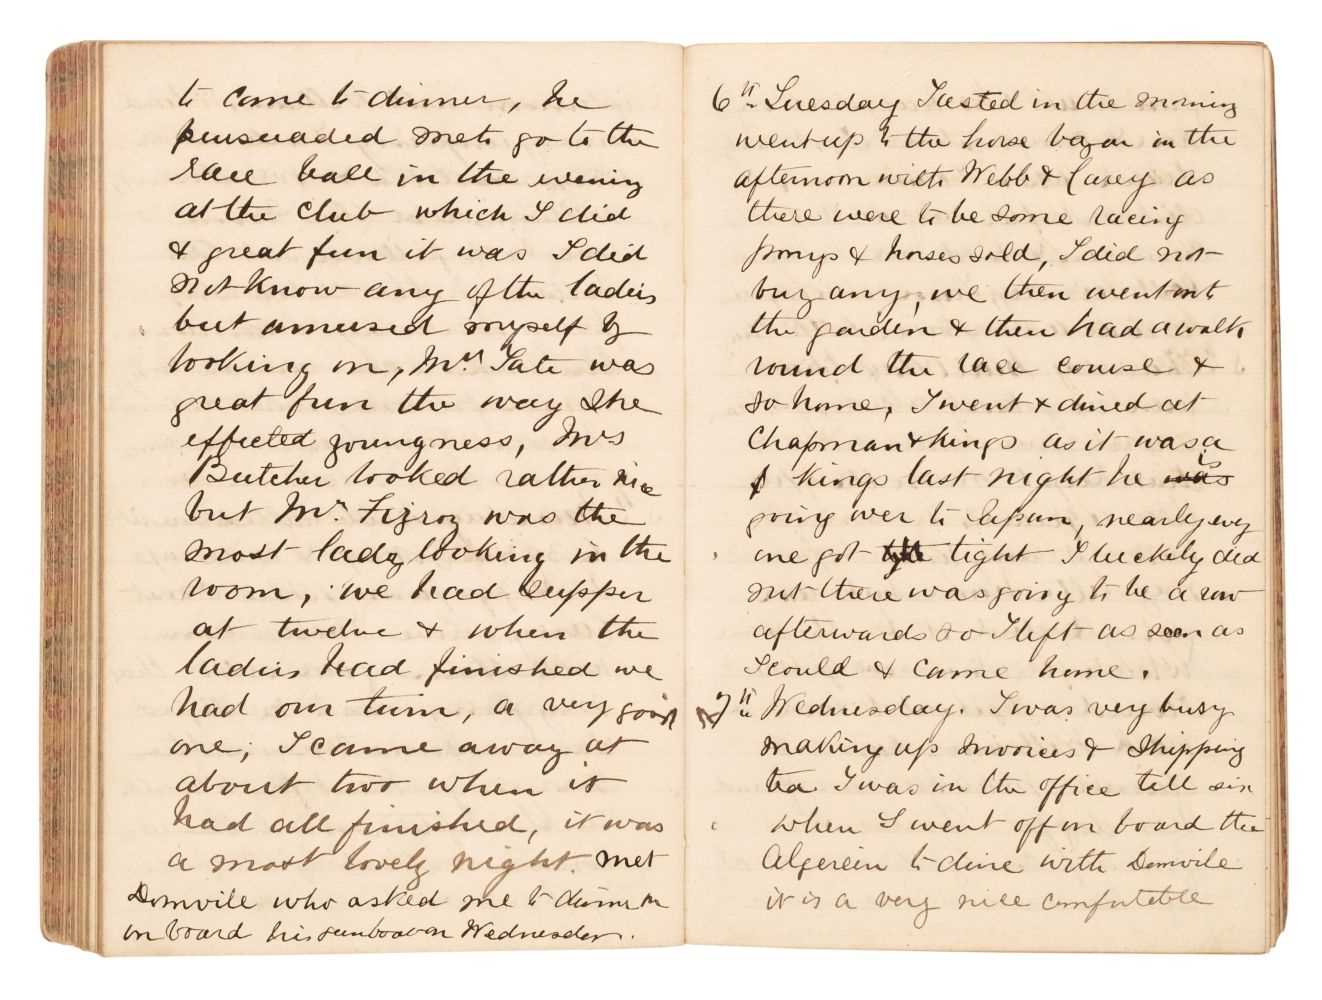 to come to dinner, he
persuaded me to go to the
race ball in the evening
at the Club which I did
& great fun it was I did
not know any of the ladies
but amused myself by
looking on, Mrs. Tate was
great fun the way she
effected youngness, Mrs
Butcher looked rather nice
but Mrs. Fizroy was the
most lady looking in the
room, we had supper
at twelve & when the
ladies had finished we
had our turn, a very good
one; I came away at
about two when it
had all finished, it was
a most lovely night. met
Domvile who asked me to dinner
on board his gunboat on Wednesday.
6th Tuesday Tasted in the morning
went up to the horse bazar in the
afternoon with Webb & Casey as
there were to be some racing
ponys & horses sold, I did not
buy any, we then went to
the garden & then had a walk
round the race course &
so home, I went & dined at
Chapman & Kings as it was a
Kings last night he was is
going over to Japan, nearly every
one got tight I luckely did
not there was going to be a row
afterwards so I left as soon as
I could & came home.
7th Wednesday. I was very busy
making up invoices & shipping
tea I was in the office till six
when I went off on board the
Algerein to dine with Domvile
it is a very nice comfortable